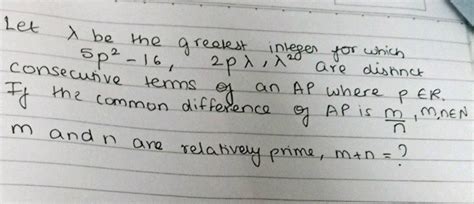 Let λ be the greatest integer for which
5p² - 16, 2pλ, λ² are distinct
consecutive terms of an AP where p ∈ R.
If the common difference of AP is m/n, m,n ∈ N
m and n are relatively prime, m+n = ?